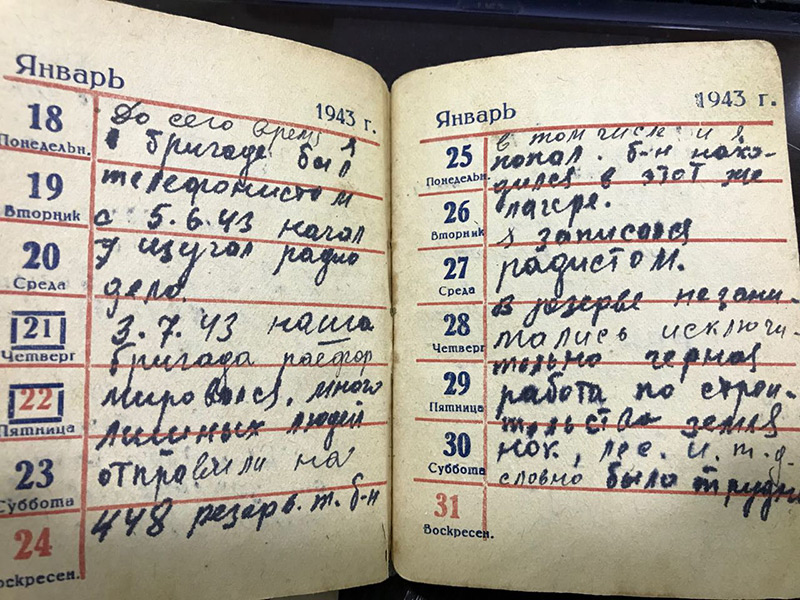 Январь 1943 г.
18 Понедельн.
19 Вторник
20 Среда
21 Четверг
22 Пятница
23 Суббота
24 Воскресен.
До сего время я
в бригаде был
телефонистом
с 5.6.43 начал
у изучал радио
дело.
3.7.43 наша
бригада расфор
мировался, много
лишных людей
отправили на
448 резерв. т. б-н
Январь 1943 г.
25 Понедельн.
26 Вторник
27 Среда
28 Четверг
29 Пятница
30 Суббота
31 Воскресен.
в том числе и я
попал. б-н нахо-
дился в этот же
лагере.
я записался
радистом.
в резерве незани-
мались исключи-
тельно черная
работа по строи-
тельства земля
нок, лес. и. т. д.
словно было трудно